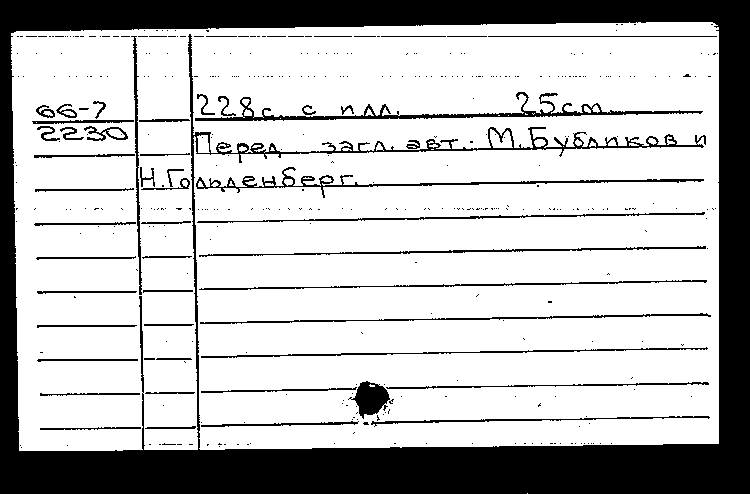 66-7 228с. с илл. 25см.
2230 Перед загл. авт.: М.Бубликов и
Н.Гольденберг.